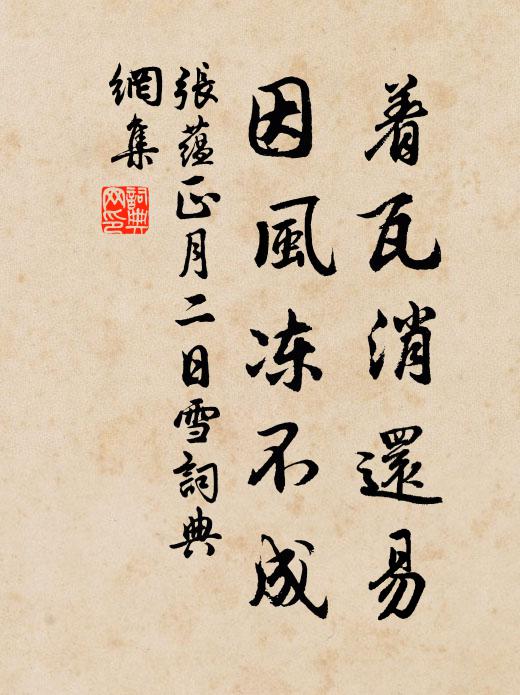 着瓦消還易
因風冻不成
張蕴正月二日雪詞典
網集
詞典
网印